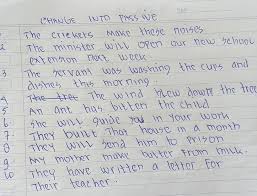 CHANGE INTO PASSIVE
1 The crickets make these noises
2 The minister will open our new school
extension next week
3 The servant was washing the cups and
dishes this morning.
4 The tree The wind blew down the tree
5 An ant has bitten the child
6 She will guide you in your work
7 They built that house in a month
8 They will send him to prison
9 My mother make butter from milk.
10 They have written a letter for
their teacher.